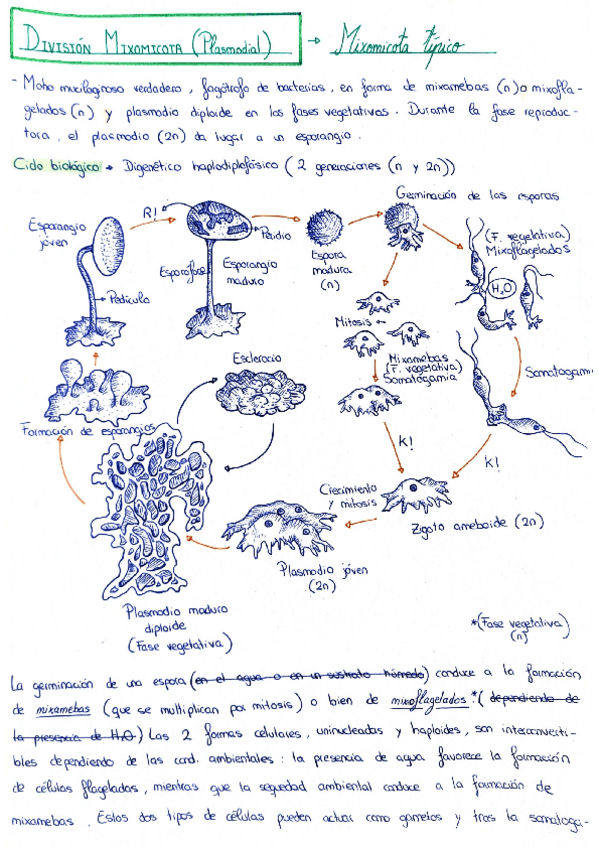 DIVISIÓN MIXOMICOTA (Plasmodial) → Mixomicota típico
- Moho mucilaginoso verdadero, fagótrofo de bacterias, en forma de mixamebas (n) o mixofla-
gelados (n) y plasmodio diploide en las fases vegetativas. Durante la fase reproduc-
tora, el plasmodio (2n) da lugar a un esporangio.
Ciclo biológico → Digenético haplodiplofásico (2 generaciones (n y 2n))
Germinación de las esporas
Esporangio
jóven
R!
Peridio
Pedículo
Esporóforo
Esporangio
maduro
Espora
madura
(n)
(F. vegetativa)
Mixoflagelados
H2O
Mitosis ←
Mixamebas
(F. vegetativa)
Somatogamia
Somatogami
Esclerocio
Formación de esporangios
K!
K!
Crecimiento
y mitosis
Zigoto ameboide (2n)
Plasmodio jóven
(2n)
Plasmodio maduro
diploide
(Fase vegetativa)
*(Fase vegetativa)
(n)
La germinación de una espora (en el agua o en un sustrato húmedo) conduce a la formación
de mixamebas (que se multiplican por mitosis) o bien de mixoflagelados.*( dependiendo de
la presencia de H2O) Las 2 formas celulares, uninucleadas y haploides, son interconverti-
bles dependiendo de las cond. ambientales: la presencia de agua favorece la formación
de células flageladas, mientras que la sequedad ambiental conduce a la formación de
mixamebas. Estos dos tipos de células pueden actuar como gametos y tras la somatoga-